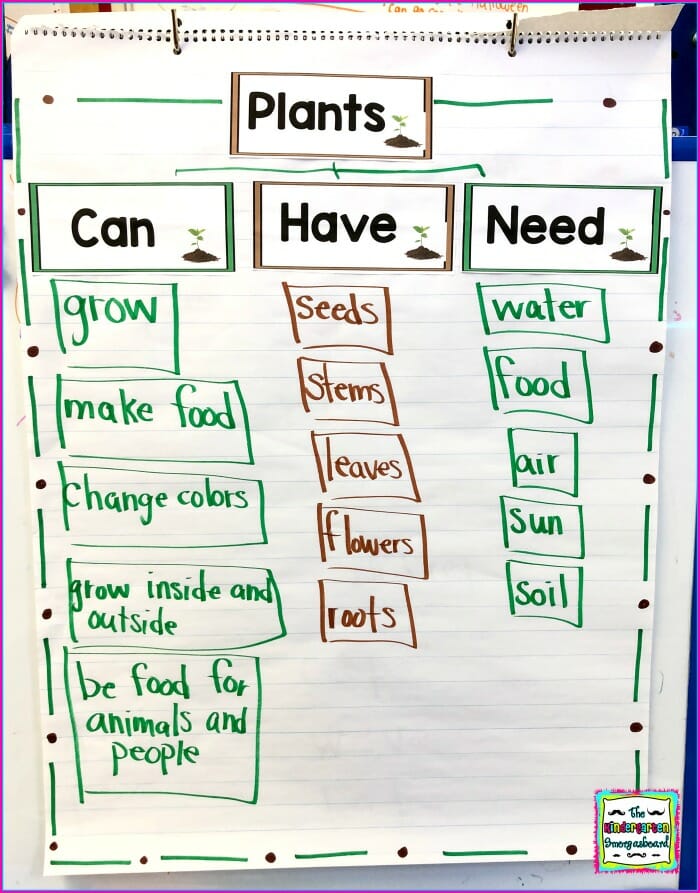 Can go Halloween
Plants
Can Have Need
grow
make food
change colors
grow inside and
outside
be food for
animals and
people
seeds
stems
leaves
flowers
roots
water
food
air
sun
soil
The
Kindergarten
Smorgasboard